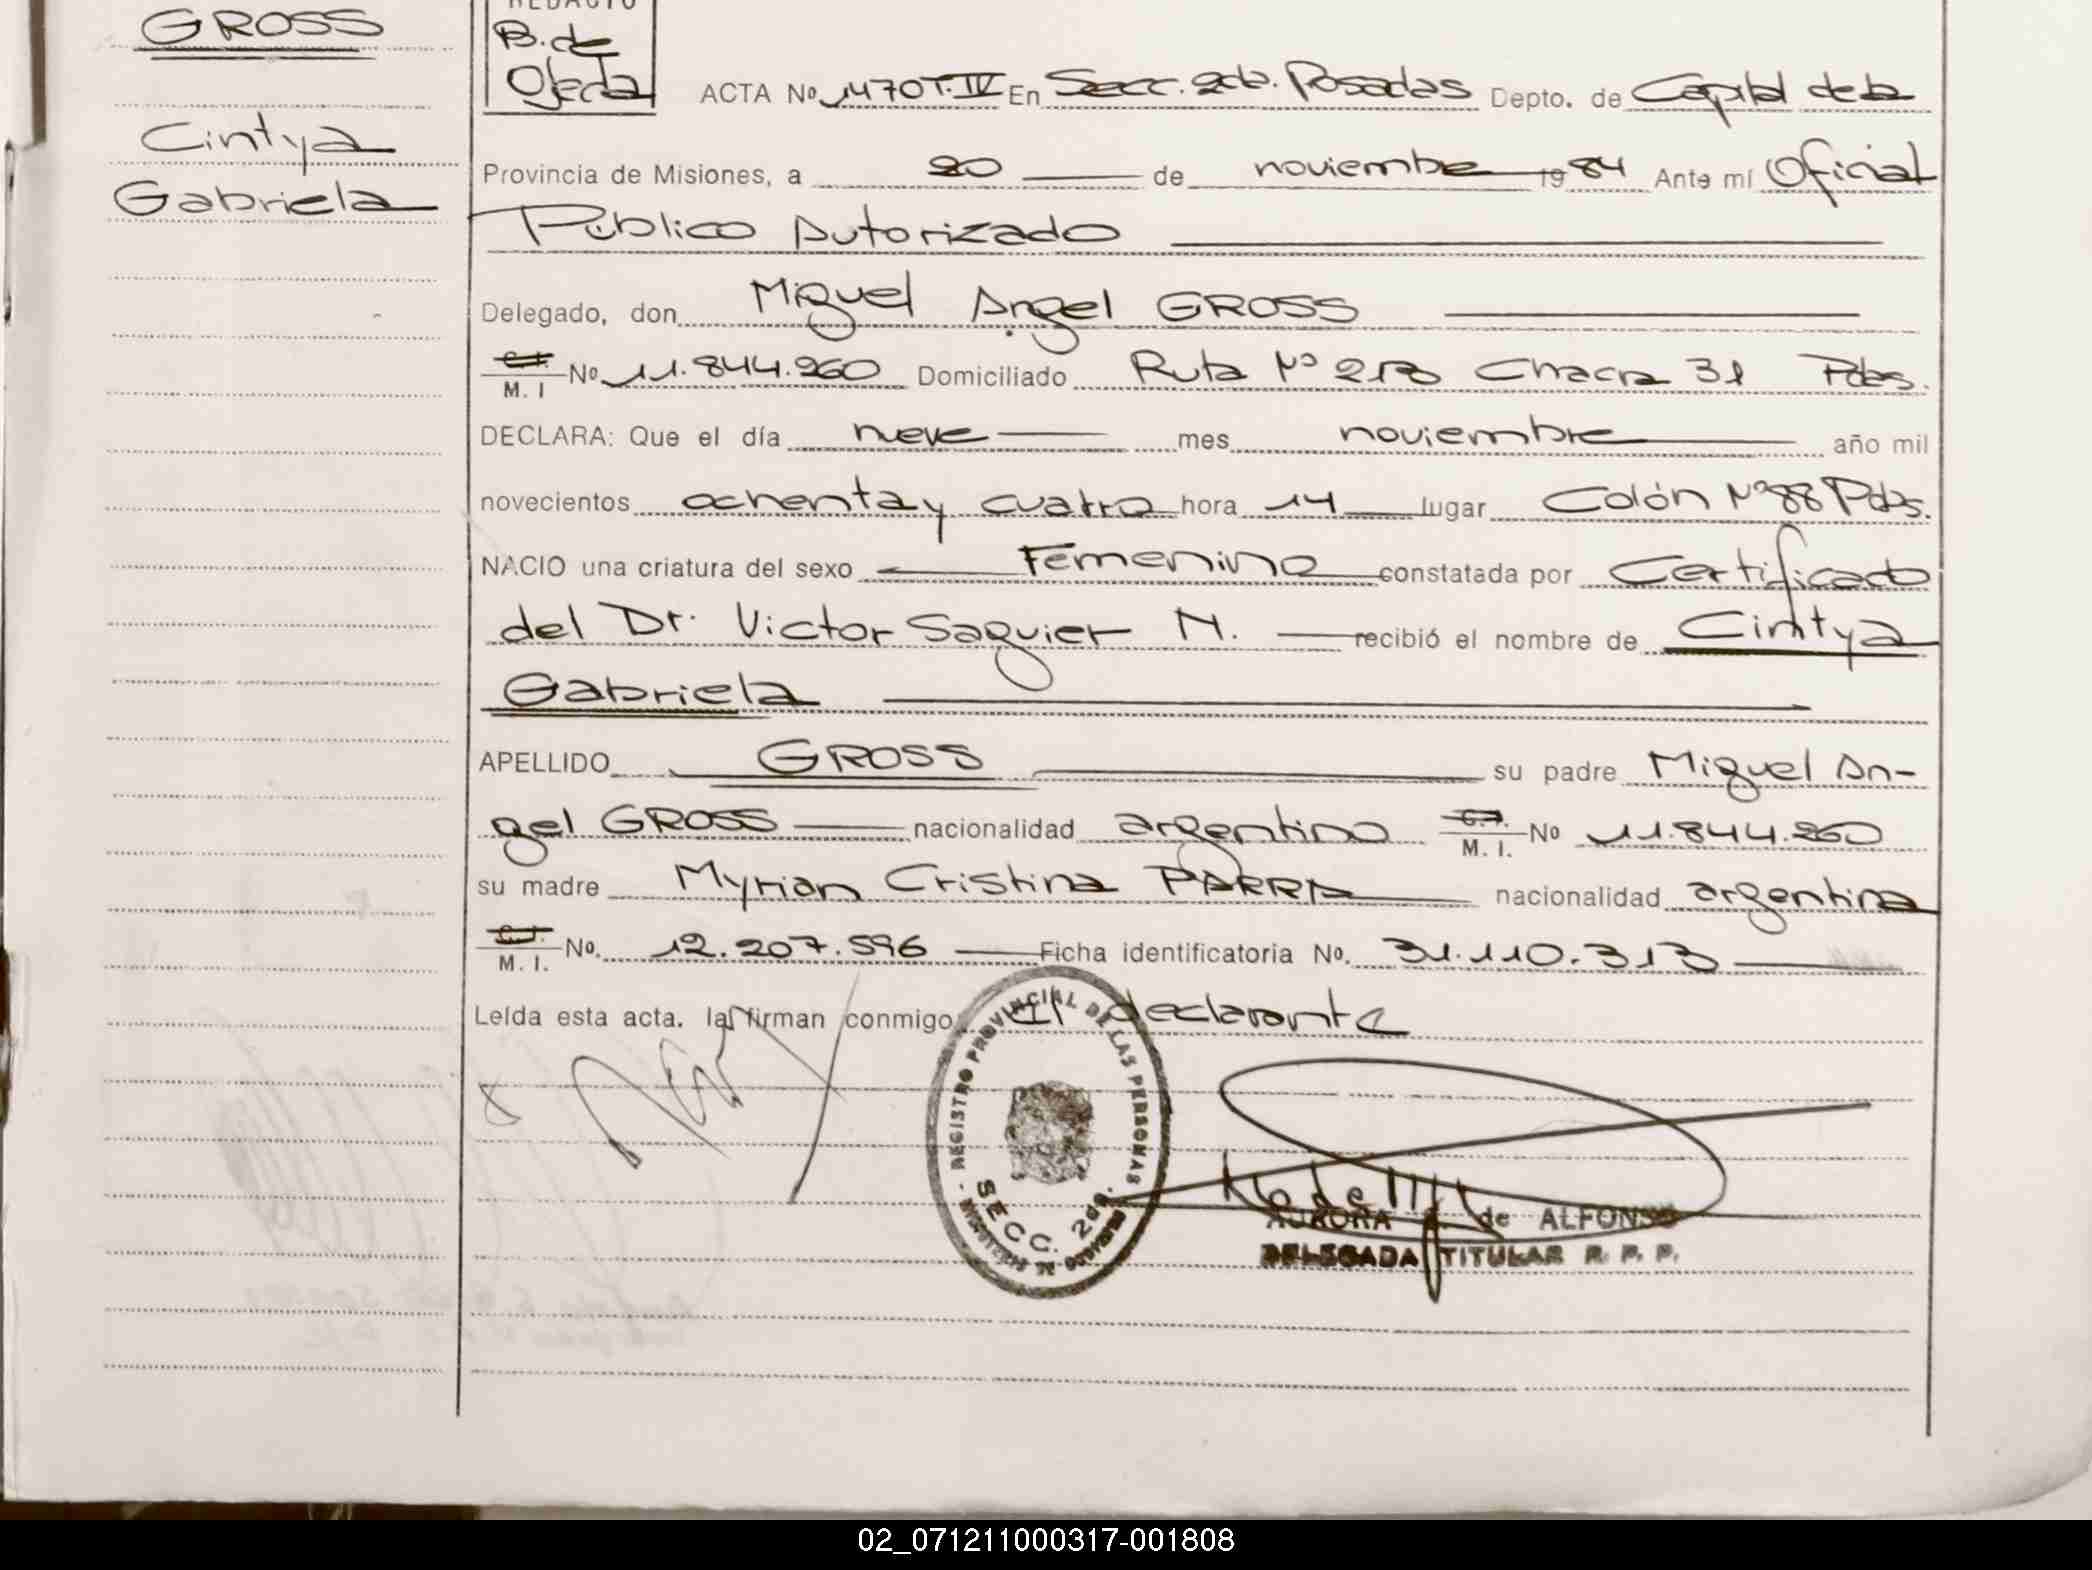 GROSS
Cintya
Gabriela
REDACTO
B. de
Ojeda
ACTA Nº 1470 T. IV En Secc. 2da. Posadas Depto. de Capital de la
Provincia de Misiones, a 20 de noviembre 1984 Ante mí Oficial
Público Autorizado
Delegado, don Miguel Angel GROSS
C.I. M. I Nº 11.844.260 Domiciliado Ruta Nº 213 Chacra 31 Pdas.
DECLARA: Que el día nueve mes noviembre año mil
novecientos ochenta y cuatro hora 14 lugar Colón Nº 88 Pdas.
NACIO una criatura del sexo Femenino constatada por Certificado
del Dr. Victor Saguier N. recibió el nombre de Cintya
Gabriela
APELLIDO GROSS su padre Miguel An-
gel GROSS nacionalidad argentino C.I. M. I. Nº 11.844.260
su madre Myrian Cristina PARRA nacionalidad argentina
C.I. M. I. Nº. 12.207.596 Ficha identificatoria Nº. 31.110.313
Leída esta acta. la firman conmigo El declarante
REGISTRO PROVINCIAL DE LAS PERSONAS
SECC. 2da.
MINISTERIO DE GOBIERNO
AURORA de ALFONSO
DELEGADA TITULAR R. P. P.
02_071211000317-001808